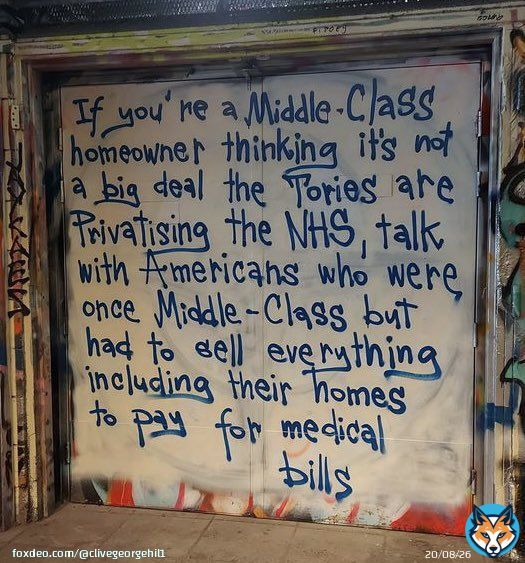 If you're a Middle-Class
homeowner thinking it's not
a big deal the Tories are
Privatising the NHS, talk
with Americans who were
once Middle-Class but
had to sell everything
including their homes
to pay for medical
bills
foxdeo.com/@clivegeorgehil1
20/08/26